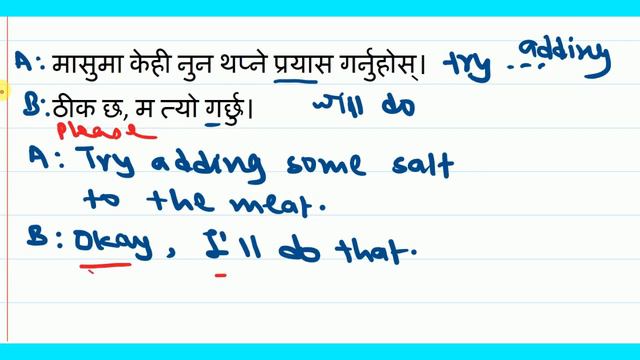 A: मासुमा केही नुन थप्ने प्रयास गर्नुहोस्। try ... adding
B: ठीक छ, म त्यो गर्छु। will do
please
A: Try adding some salt
to the meat.
B: Okay, I'll do that.